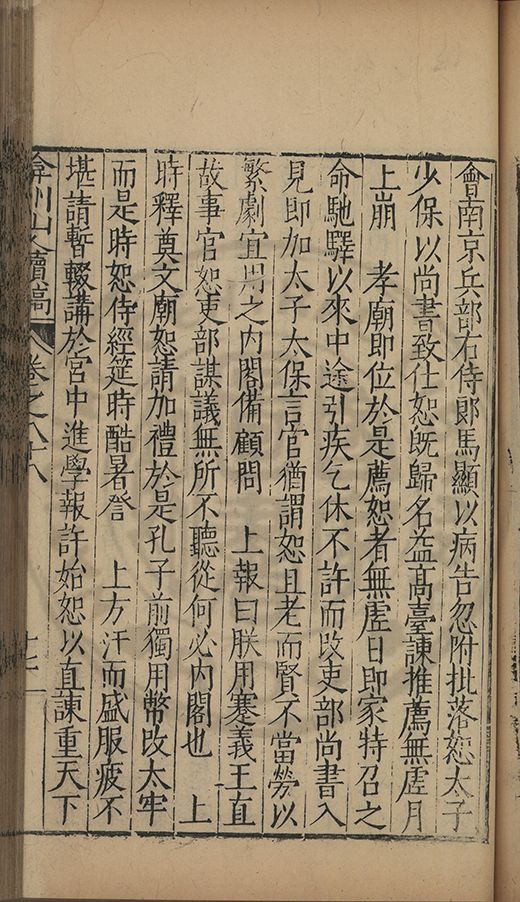 會南京兵部右侍郎馬顯以病告忽附批落恕太子
少保以尚書致仕恕既歸名益髙臺諫推薦無虗月
上崩　孝廟即位於是薦恕者無虗日即家特召之
命馳驛以來中途引疾乞休不許而改吏部尚書入
見即加太子太保言官猶謂恕且老而賢不當勞以
繁劇宜用之内閣備顧問　上報曰朕用蹇義王直
故事官恕吏部謀議無所不聽從何必内閣也　上
時釋奠文廟恕請加禮於是孔子前獨用幣改太牢
而是時恕侍經筵時酷暑　上方汗而盛服疲不
堪請暫輟講於宮中進學報許始恕以直諫重天下
弇州山人續稿　卷之八十八